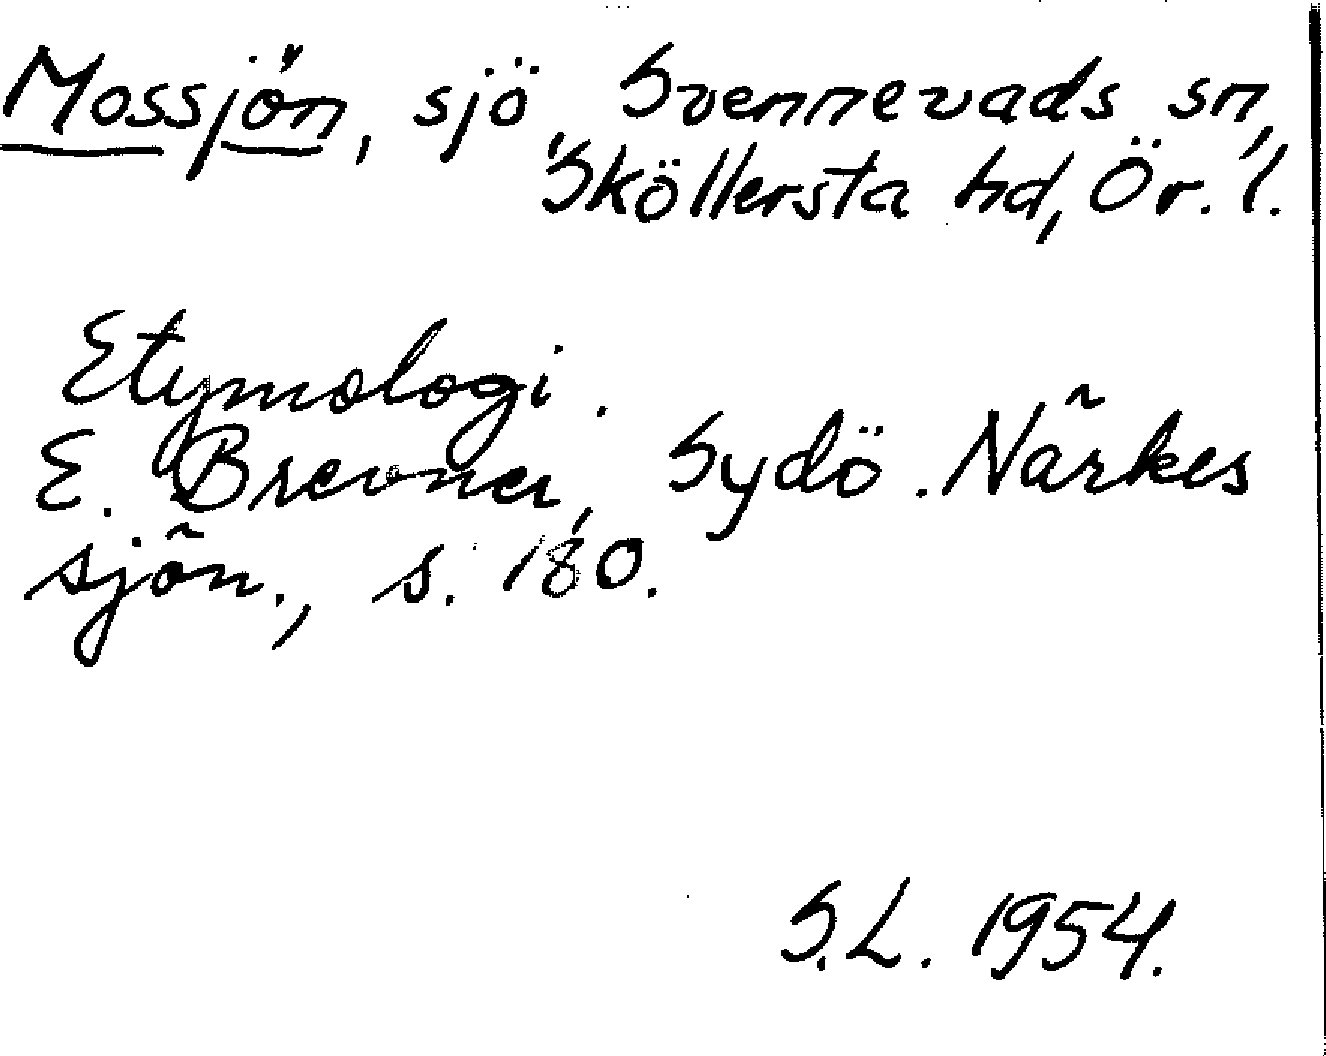 Mossjön, sjö, Svennevads sn,
Sköllersta hd, Ör. l.
Etymologi.
E. Brevner, Sydö. Närkes
sjön., s. 180.
S.L. 1954.